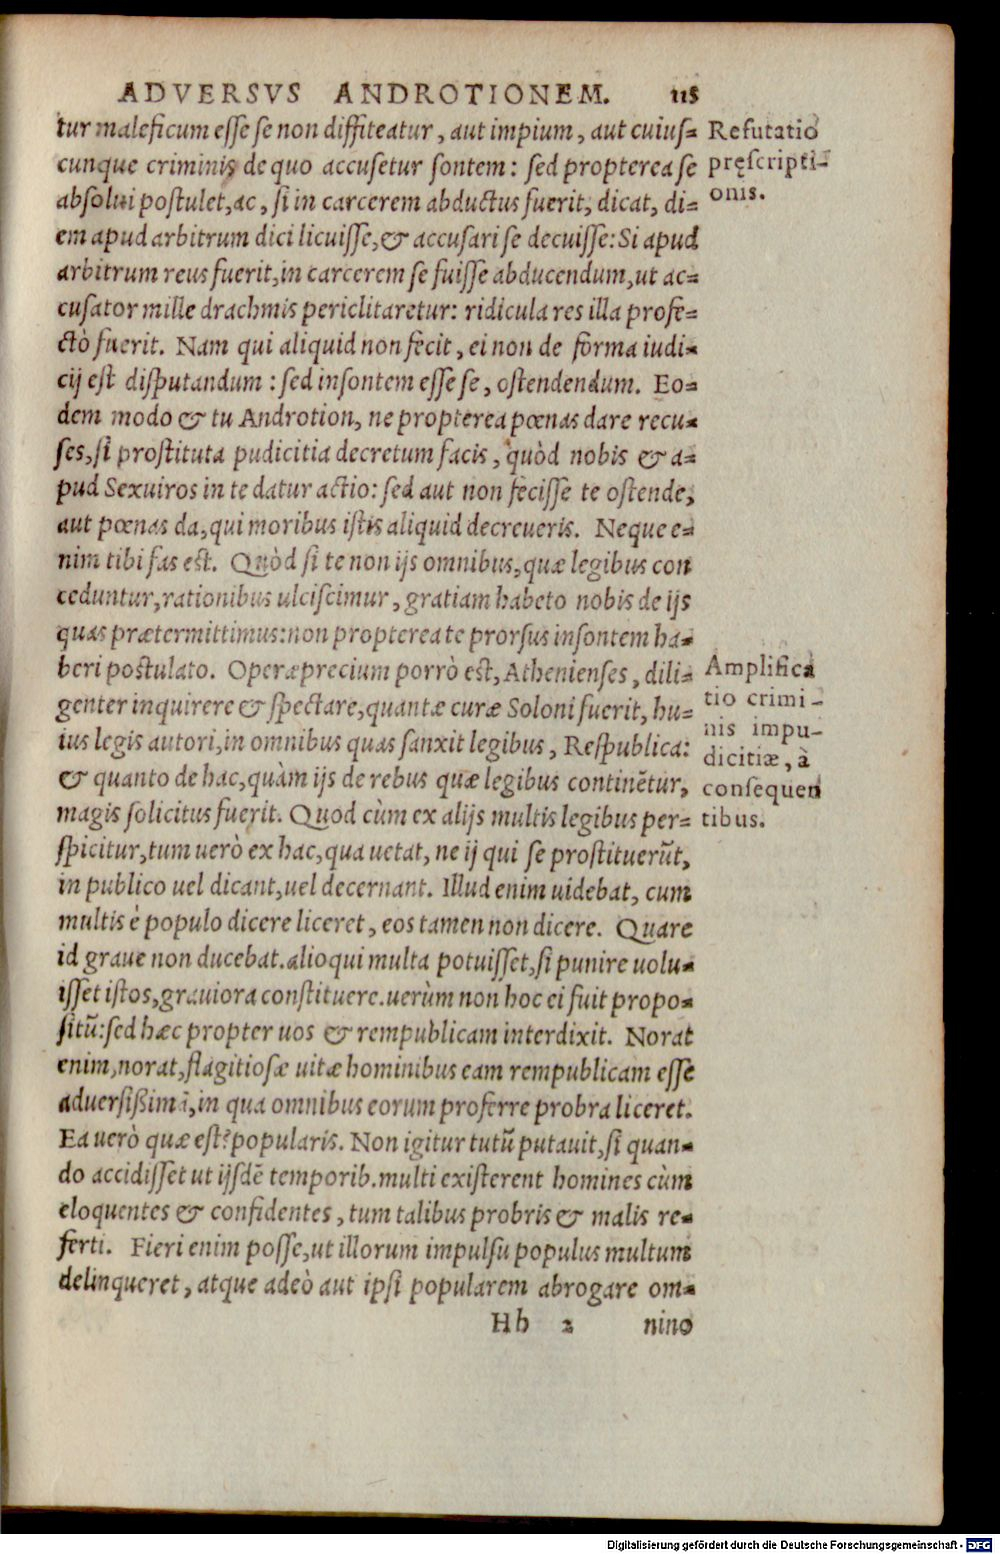 ADVERSVS ANDROTIONEM. 115
tur maleficum esse se non diffiteatur, aut impium, aut cuius-
cunque criminis de quo accusetur sontem: sed propterea se
absolui postulet, ac, si in carcerem abductus fuerit, dicat, di-
em apud arbitrum dici licuisse, & accusari se decuisse: Si apud
arbitrum reus fuerit, in carcerem se fuisse abducendum, ut ac-
cusator mille drachmis periclitaretur: ridicula res illa profe-
ctò fuerit. Nam qui aliquid non fecit, ei non de forma iudi-
cij est disputandum: sed insontem esse se, ostendendum. Eo-
dem modo & tu Androtion, ne propterea pœnas dare recu-
ses, si prostituta pudicitia decretum facis, quòd nobis & a-
pud Sexuiros in te datur actio: sed aut non fecisse te ostende,
aut pœnas da, qui moribus istis aliquid decreueris. Neque e-
nim tibi fas est. Quòd si te non ijs omnibus, quæ legibus con
ceduntur, rationibus ulciscimur, gratiam habeto nobis de ijs
quas prætermittimus: non propterea te prorsus insontem ha-
beri postulato. Operæprecium porrò est, Athenienses, dili-
genter inquirere & spectare, quantæ curæ Soloni fuerit, hu-
ius legis autori, in omnibus quas sanxit legibus, Respublica:
& quanto de hac, quàm ijs de rebus quæ legibus continẽtur,
magis solicitus fuerit. Quod cùm ex alijs multis legibus per-
spicitur, tum uerò ex hac, qua uetat, ne ij qui se prostituerũt,
in publico uel dicant, uel decernant. Illud enim uidebat, cum
multis è populo dicere liceret, eos tamen non dicere. Quare
id graue non ducebat. alioqui multa potuisset, si punire uolu-
isset istos, grauiora constituere. uerùm non hoc ei fuit propo-
sitũ: sed hæc propter uos & rempublicam interdixit. Norat
enim, norat, flagitiosæ uitæ hominibus eam rempublicam esse
aduersißimã, in qua omnibus eorum proferre probra liceret.
Ea uerò quæ est? popularis. Non igitur tutũ putauit, si quan-
do accidisset ut ijsdẽ temporib. multi existerent homines cùm
eloquentes & confidentes, tum talibus probris & malis re-
ferti. Fieri enim posse, ut illorum impulsu populus multum
delinqueret, atque adeò aut ipsi popularem abrogare om-
Hh 2 nino
Refutatio
pręscripti-
onis.
Amplifica
tio crimi-
nis impu-
dicitiæ, à
consequen
tibus.
Digitalisierung gefördert durch die Deutsche Forschungsgemeinschaft - DFG